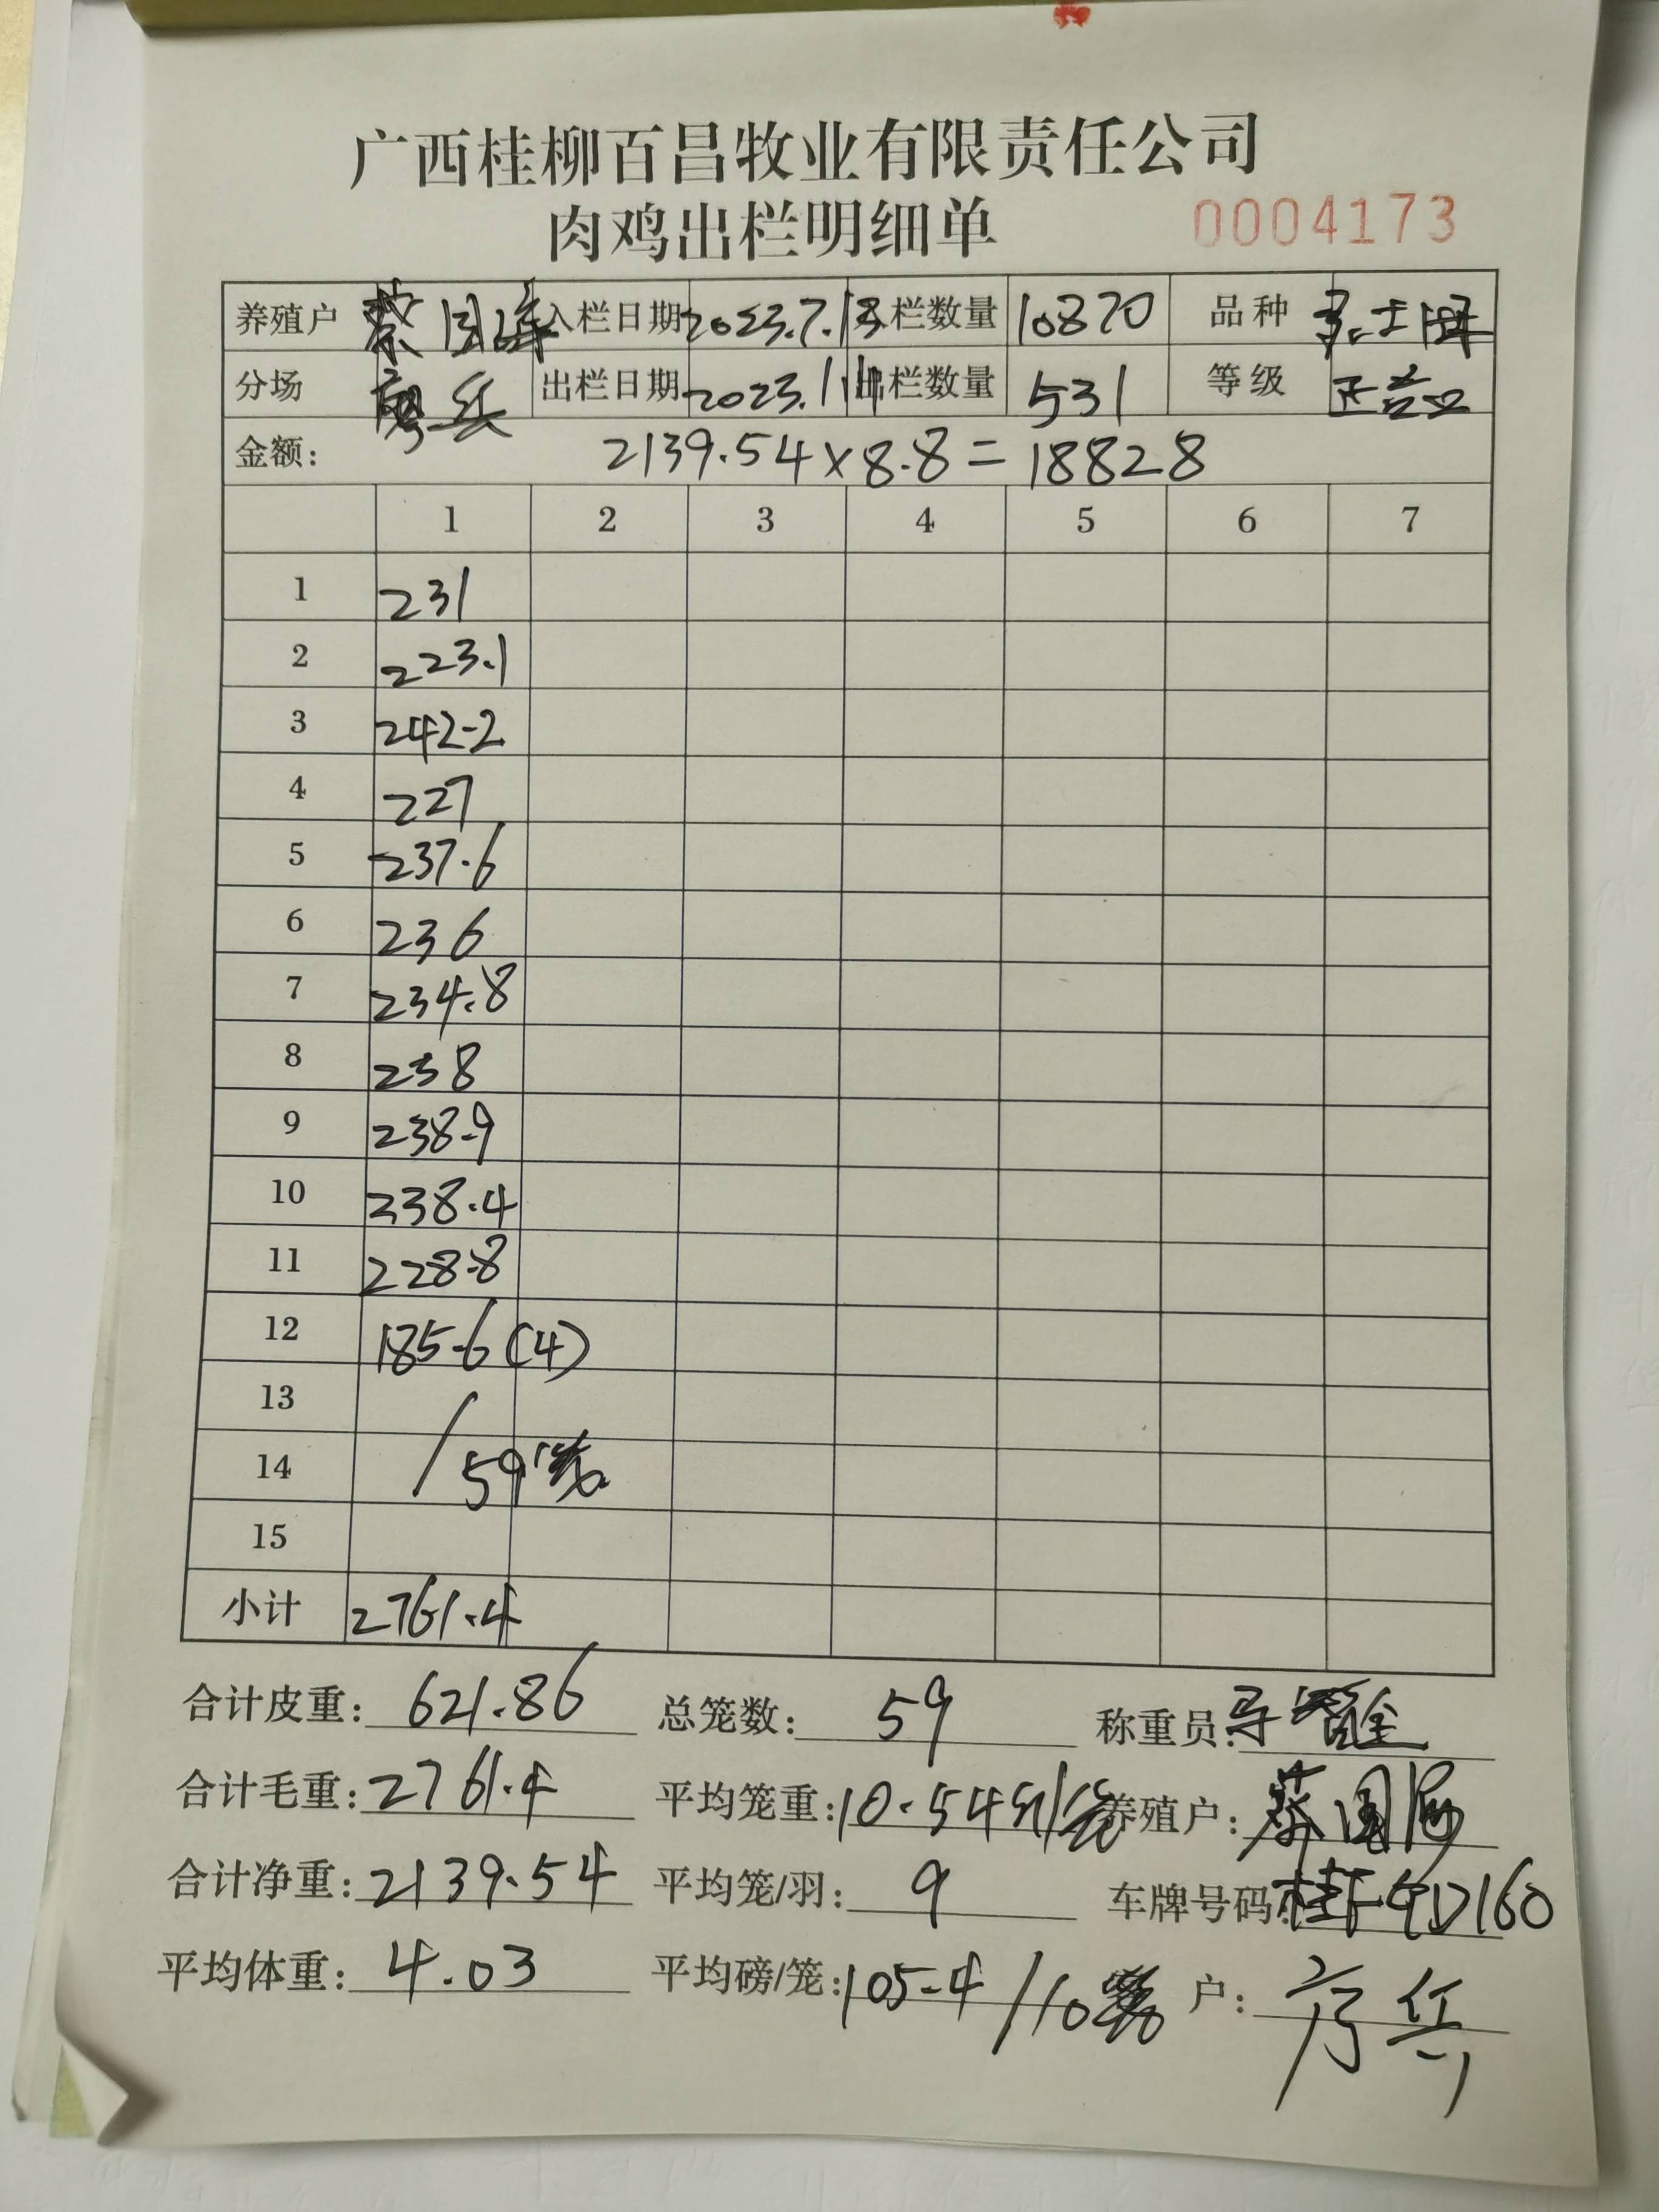 广西桂柳百昌牧业有限责任公司
肉鸡出栏明细单 0004173
养殖户 蔡国海 入栏日期 2023.7.13 入栏数量 10870 品种
分场 廖兵 出栏日期 2023.11.1 出栏数量 531 等级 正品
金额: 2139.54×8.8=18828
1 2 3 4 5 6 7
1 231
2 223.1
3 242.2
4 227
5 237.6
6 236
7 234.8
8 238
9 238.9
10 238.4
11 228.8
12 185.6(4)
13
14 / 59笼
15
小计 2761.4
合计皮重: 621.86 总笼数: 59 称重员:
合计毛重: 2761.4 平均笼重: 10.54斤/笼 养殖户: 蔡国海
合计净重: 2139.54 平均笼/羽: 9 车牌号码:
平均体重: 4.03 平均磅/笼: 105.4/10笼 户: 廖兵